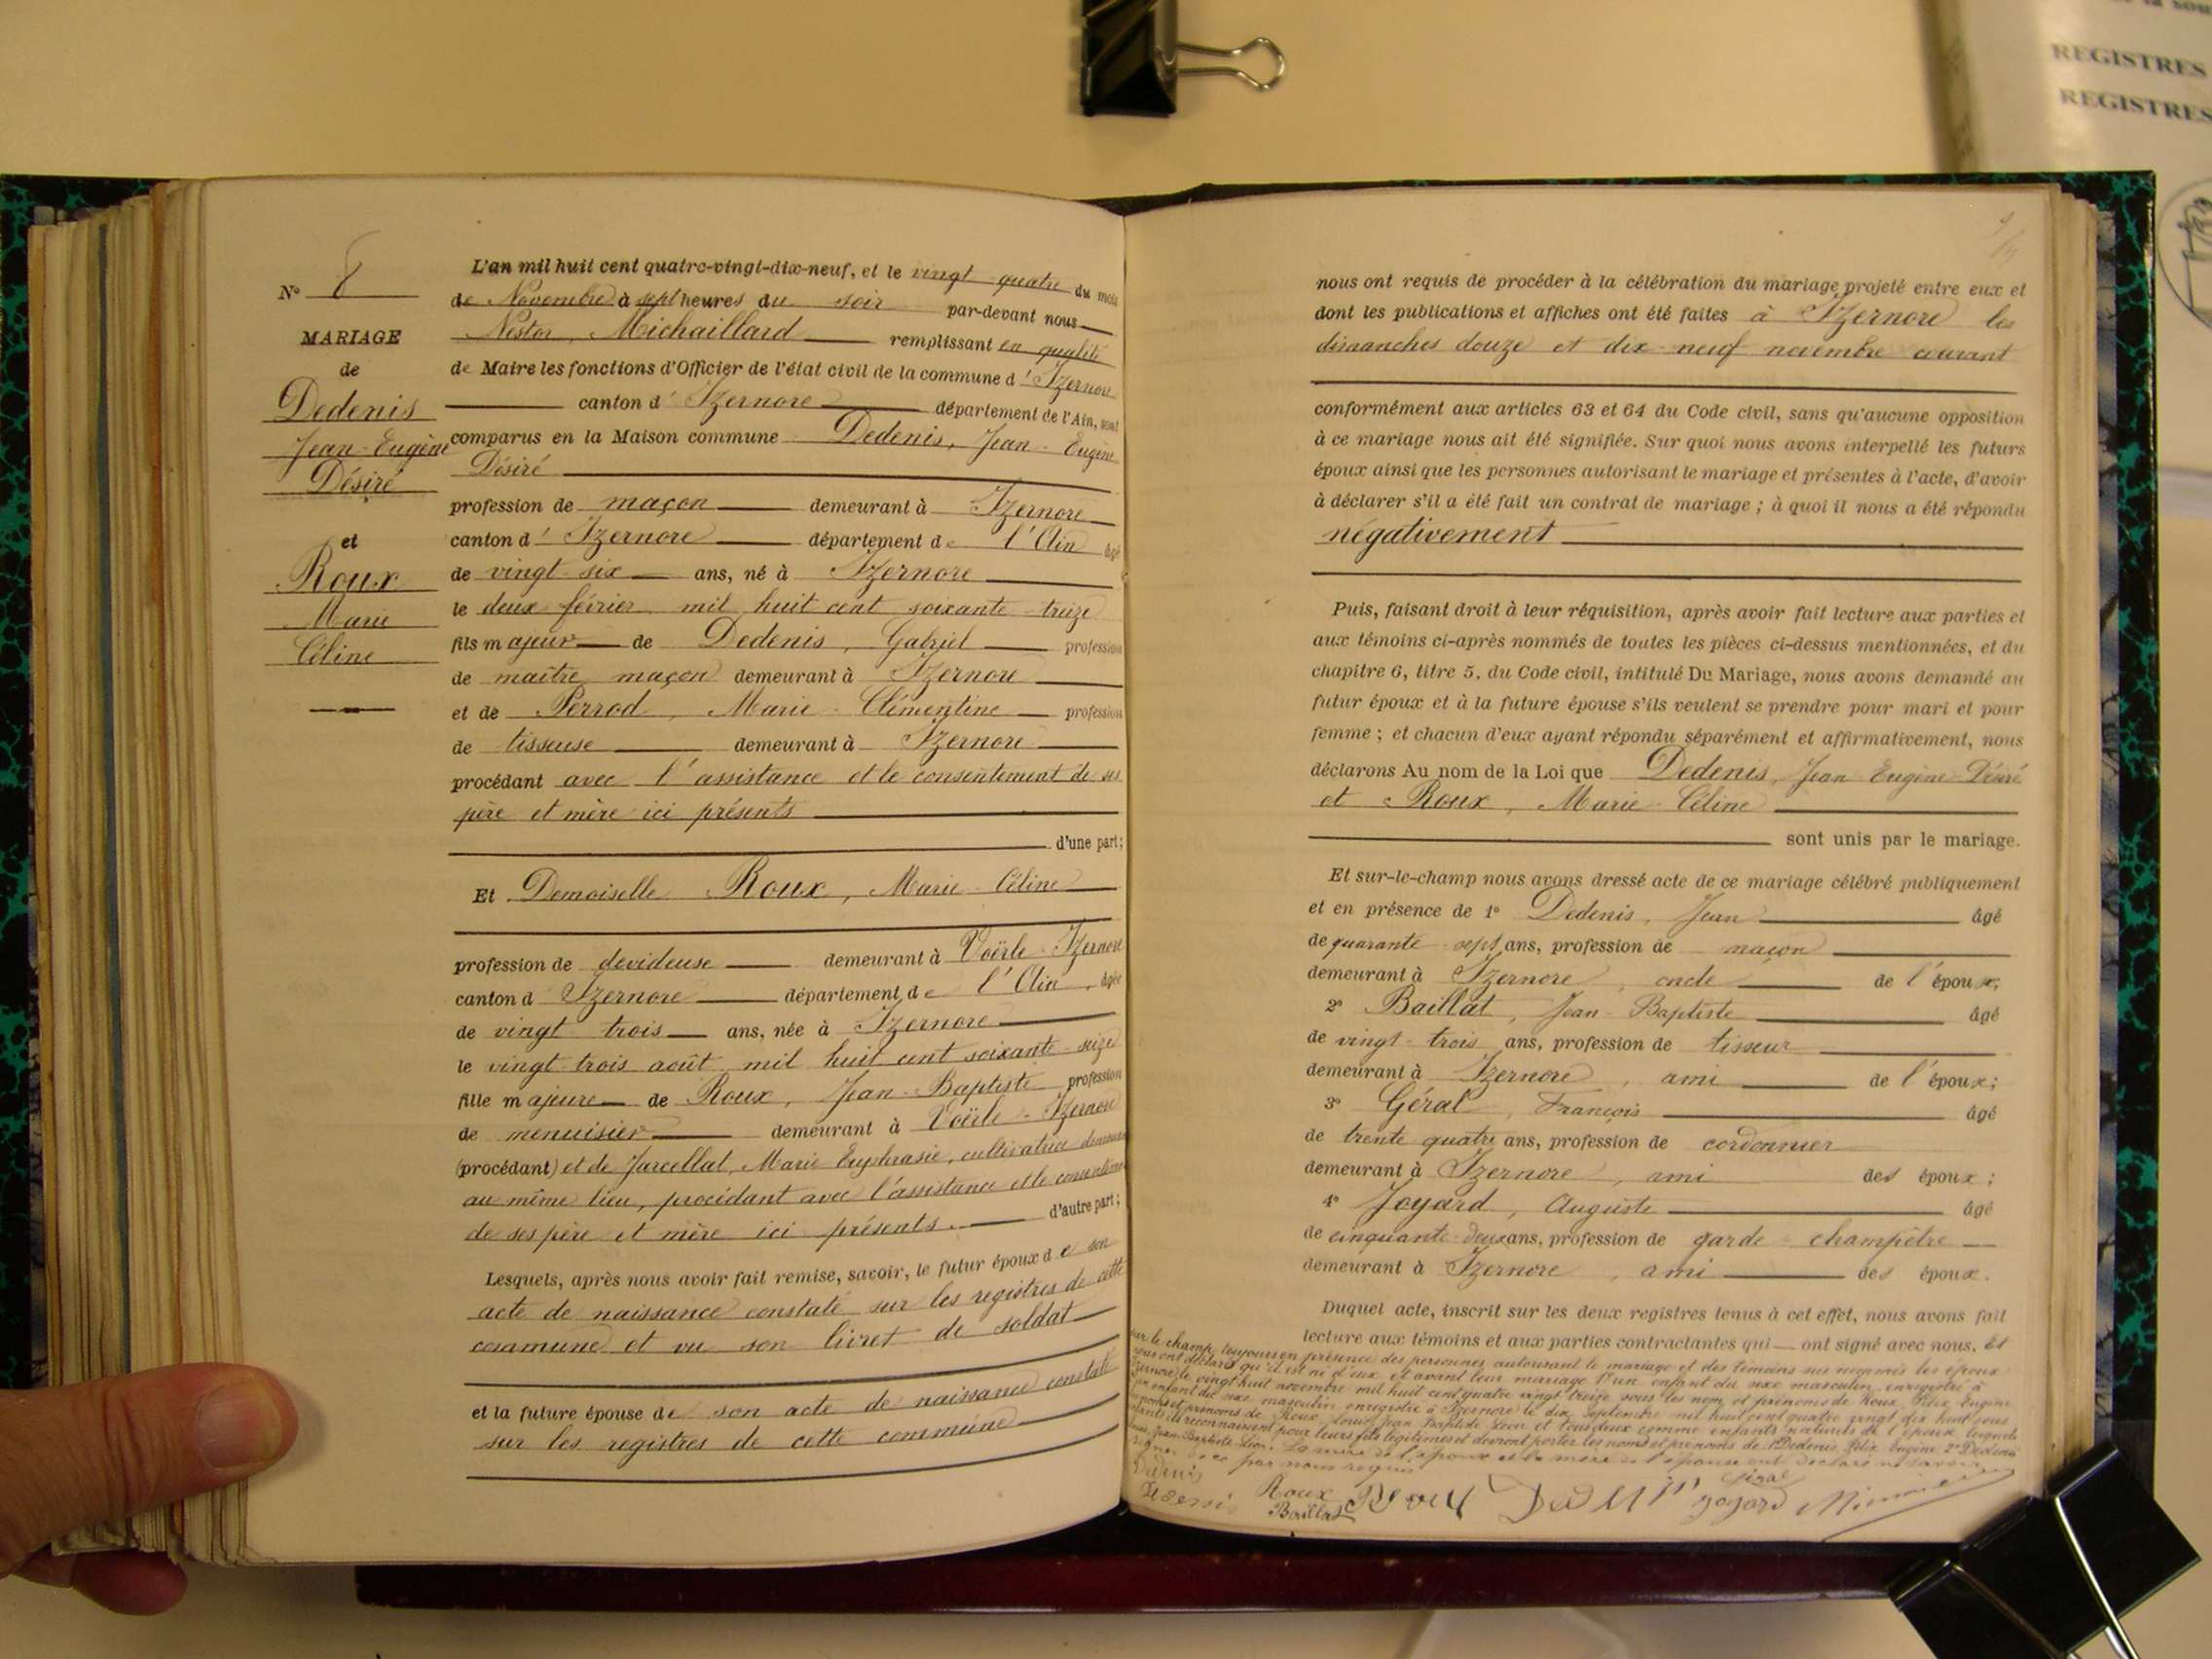 REGISTRES
REGISTRES
N° 8
MARIAGE
de
Dedenis
Jean-Eugène
Désiré
et
Roux
Marie
Céline
L'an mil huit cent quatre-vingt-dix-neuf, et le vingt-quatre du mois
de Novembre à sept heures du soir par-devant nous
Nestor Michaillard remplissant en qualité
de Maire les fonctions d'Officier de l'état civil de la commune d'Izernore
canton d'Izernore département de l'Ain, sont
comparus en la Maison commune Dedenis, Jean-Eugène
Désiré
profession de maçon demeurant à Izernore
canton d'Izernore département de l'Ain âgé
de vingt-six ans, né à Izernore
le deux février mil huit cent soixante-treize
fils majeur de Dedenis, Gabriel profession
de maître maçon demeurant à Izernore
et de Perrod, Marie-Clémentine profession
de tisseuse demeurant à Izernore
procédant avec l'assistance et le consentement de ses
père et mère ici présents
d'une part;
Et Demoiselle Roux, Marie-Céline
profession de devideuse demeurant à Voërle-Izernore
canton d Izernore département de l'Ain, âgée
de vingt trois ans, née à Izernore
le vingt-trois août mil huit cent soixante-seize
fille majeure de Roux, Jean-Baptiste profession
de menuisier demeurant à Voërle-Izernore
(procédant) et de Jarcellat, Marie Euphrasie, cultivatrice demeurant
au même lieu, procédant avec l'assistance et le consentement
de ses père et mère ici présents. d'autre part;
Lesquels, après nous avoir fait remise, savoir, le futur époux de son
acte de naissance constaté sur les registres de cette
commune et vu son livret de soldat
et la future épouse de son acte de naissance constaté
sur les registres de cette commune
nous ont requis de procéder à la célébration du mariage projeté entre eux et
dont les publications et affiches ont été faites à Izernore les
dimanches douze et dix-neuf novembre courant
conformément aux articles 63 et 64 du Code civil, sans qu'aucune opposition
à ce mariage nous ait été signifiée. Sur quoi nous avons interpellé les futurs
époux ainsi que les personnes autorisant le mariage et présentes à l'acte, d'avoir
à déclarer s'il a été fait un contrat de mariage ; à quoi il nous a été répondu
négativement
Puis, faisant droit à leur réquisition, après avoir fait lecture aux parties et
aux témoins ci-après nommés de toutes les pièces ci-dessus mentionnées, et du
chapitre 6, titre 5, du Code civil, intitulé Du Mariage, nous avons demandé au
futur époux et à la future épouse s'ils veulent se prendre pour mari et pour
femme ; et chacun d'eux ayant répondu séparément et affirmativement, nous
déclarons Au nom de la Loi que Dedenis, Jean Eugène-Désiré
et Roux, Marie-Céline
sont unis par le mariage.
Et sur-le-champ nous avons dressé acte de ce mariage célébré publiquement
et en présence de 1° Dedenis, Jean âgé
de quarante-sept ans, profession de maçon
demeurant à Izernore, oncle de l'époux;
2° Baillat, Jean-Baptiste âgé
de vingt-trois ans, profession de tisseur
demeurant à Izernore, ami de l'époux;
3° Géral, François âgé
de trente quatre ans, profession de cordonnier
demeurant à Izernore, ami des époux;
4° Joyard, Auguste âgé
de cinquante-deux ans, profession de garde-champêtre
demeurant à Izernore, ami des époux.
Duquel acte, inscrit sur les deux registres tenus à cet effet, nous avons fait
lecture aux témoins et aux parties contractantes qui ont signé avec nous. Et
sur le champ, toujours en présence des personnes autorisant le mariage et des témoins sus nommés les époux
nous ont déclaré qu'il est né d'eux et avant leur mariage 1° un enfant du sexe masculin enregistré à
Izernore le vingt huit novembre mil huit cent quatre vingt treize sous les nom et prénoms de Roux, Félix Eugène
un enfant du sexe masculin enregistré à Izernore le dix septembre mil huit cent quatre vingt dix huit sous
les noms et prénoms de Roux, Louis Jean Baptiste Léon et tous deux comme enfants naturels de l'épouse lesquels
enfants ils reconnaissent pour leurs fils légitimes et devront porter les noms et prénoms de 1° Dedenis, Félix Eugène 2° Dedenis
Jean Baptiste Léon. La mère de l'époux et la mère de l'épouse ont déclaré ne savoir
signer de ce par nous requis
Dedenis Roux Roux Géral
Dedenis Baillat Joyard